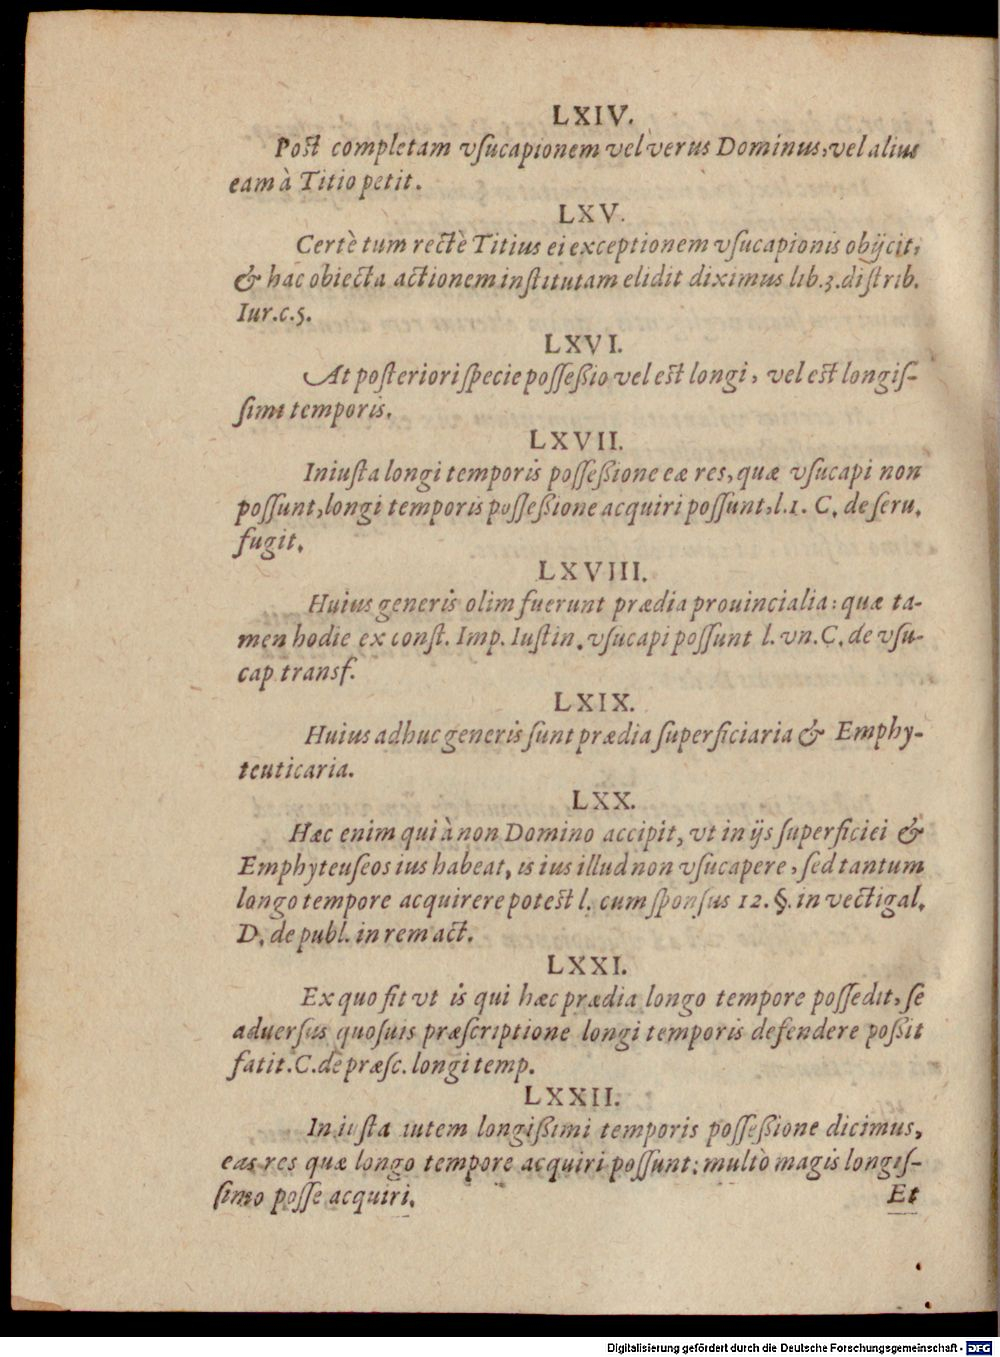 LXIV.
Post completam vsucapionem vel verus Dominus, vel alius
eam à Titio petit.
LXV.
Certè tum rectè Titius ei exceptionem vſucapionis obijcit,
& hac obiecta actionem inſtitutam elidit diximus lib.3.diſtrib.
Iur.c.5.
LXVI.
At poſteriori ſpecie poſſeßio vel est longi, vel est longiſ-
ſimi temporis.
LXVII.
In iuſta longi temporis poſſeßione eæ res, quæ vſucapi non
poſſunt, longi temporis poſſeßione acquiri poſſunt, l.1. C. de ſeru.
fugit.
LXVIII.
Huius generis olim fuerunt prædia prouincialia: quæ ta-
men hodie ex conſt. Imp. Iuſtin. vſucapi poſſunt l. vn. C. de vſu-
cap transf.
LXIX.
Huius adhuc generis ſunt prædia ſuperficiaria & Emphy-
teuticaria.
LXX.
Hæc enim qui à non Domino accipit, vt in ijs ſuperficiei &
Emphyteuſeos ius habeat, is ius illud non vſucapere, ſed tantum
longo tempore acquirere potest l. cum ſponſus 12. §. in vectigal.
D. de publ. in rem act.
LXXI.
Ex quo fit vt is qui hæc prædia longo tempore poſſedit, ſe
aduerſus quoſuis præſcriptione longi temporis defendere poßit
fatit. C. de præſc. longi temp.
LXXII.
In iuſta autem longißimi temporis poſſeßione dicimus,
eas res quæ longo tempore acquiri poſſunt; multò magis longiſ-
ſimo poſſe acquiri.
Et
Digitalisierung gefördert durch die Deutsche Forschungsgemeinschaft - DFG